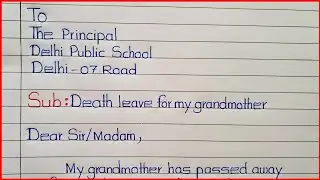 To
The Principal
Delhi Public School
Delhi-07 Road
Sub: Death leave for my grandmother
Dear Sir/Madam,
My grandmother has passed away